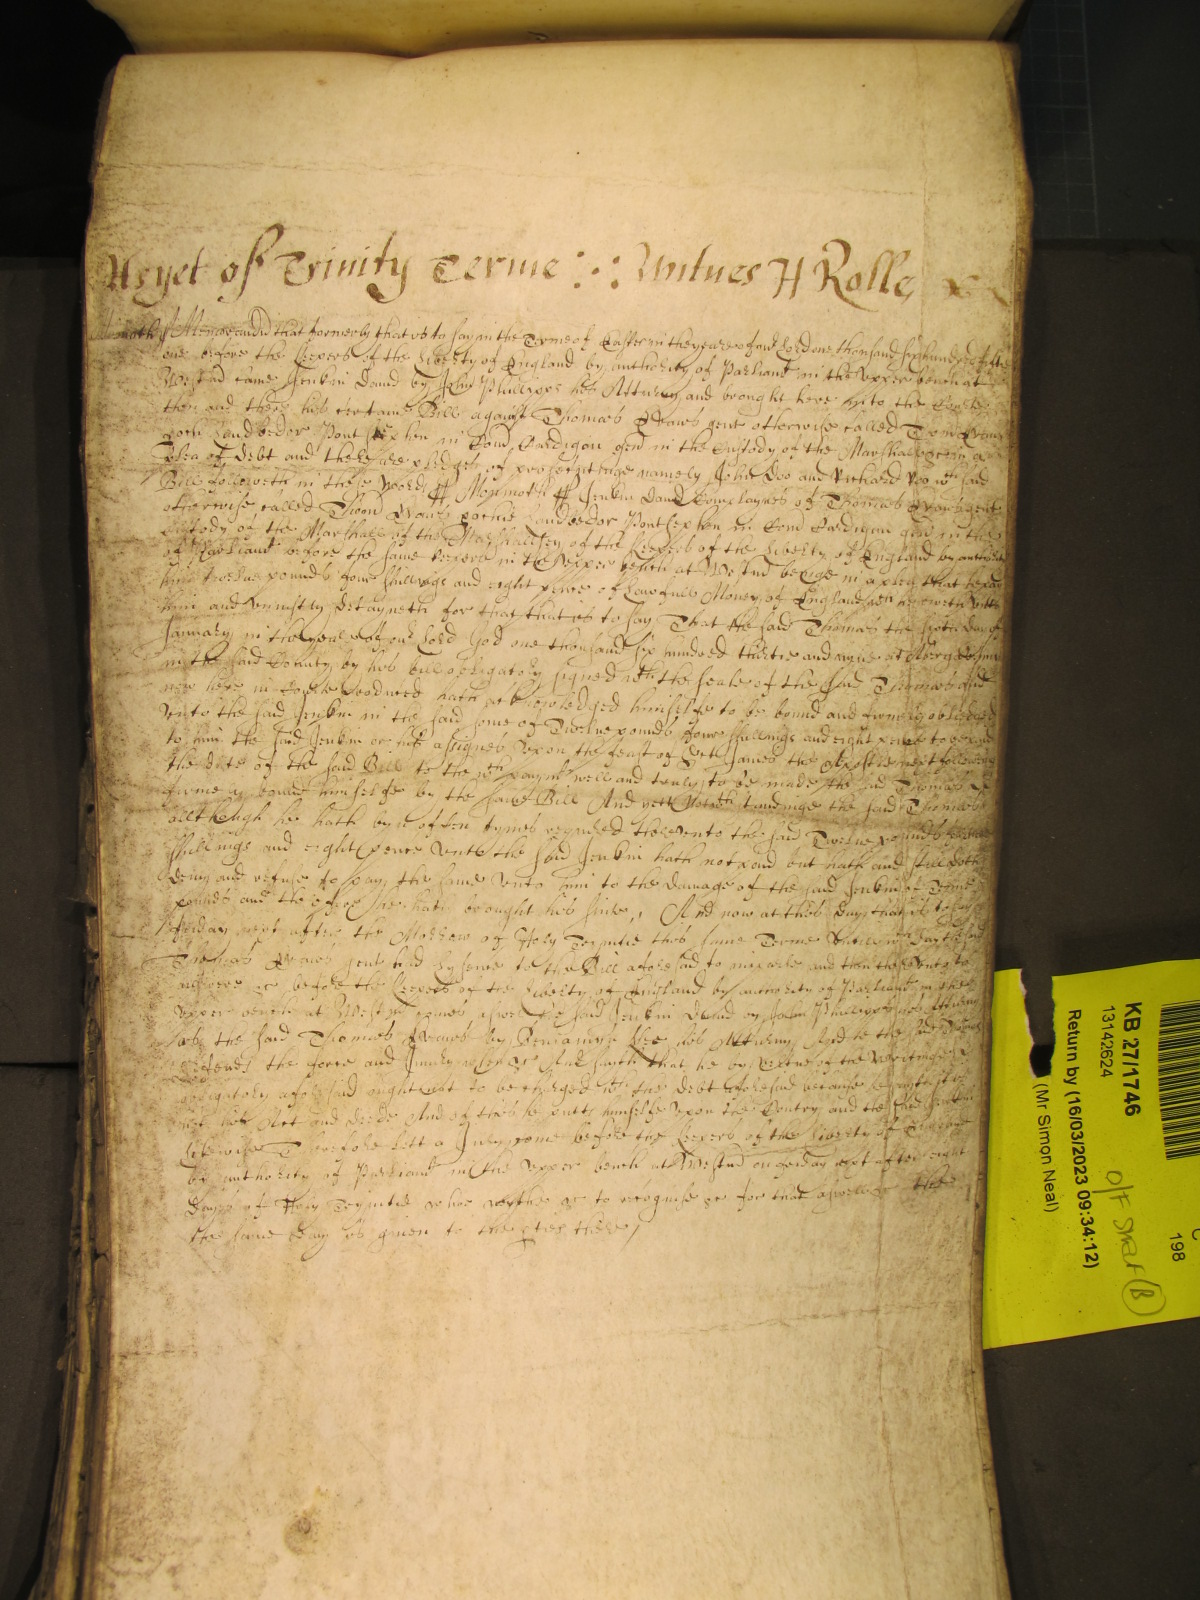 As yet of Trinity Terme Wittnes H Rolle
Memorand that formerly that is to say in the Terme of Easter in the yeare of our Lord one thousand six hundred fiftie
one before the keepers of the liberty of England by authority of Parliamt in the upper bench at
Westm̃ came Jenkin David by John Phillipps his Atturny and brought here into the Courte
then and there his certaine Bill against Thomas Evans gent otherwise called
in Com̃ Cardigan gen̄ in the Custody of the Marshall &c in a
plea of debt and there are pledges of prosecutinge namely John Doe and Richard Roo wch said
Bill followeth in these words ss Monmoth ss Jenkin David Complaynes of Thomas Evans gent
otherwise called in Com̄ Cardigan gen̄ in the
Custody of the Marshall of the Marshallsey of the keepers of the liberty of England by authority
of Parliamt before the same keepers in the upper bench at Westm̃ beinge in a plea that he pay
him twelve pounds foure shillings and eight pence of lawfull Money of England wch he oweth unto
him and uniustly detayneth for that that is to say That the said Thomas the day of
January in the yeare of our Lord God one thousand six hundred thirtie and nyne at
in the said County by his bill obligatory signed wth the seale of the said Thomas and
now here in Courte produced hath acknowledged himselfe to be bound and firmely obliedged
unto the said Jenkin in the said some of Twelve pounds foure shillings and eight pence to be paid
to him the said Jenkin or his assignes upon the feast of St James the Apostle next followinge
the date of the said Bill to the wch paymt well and truly to be made the said Thomas
firmely bound himselfe by the same Bill And yett Notwthstandinge the said Thomas
although he hath byn often tymes required thereunto the said Twelve pounds foure
shillings and eight pence unto the said Jenkin hath not paid but hath and still doth
deny and refuse to pay the same unto him to the damage of the said Jenkin of Tenne
pounds and therefore he hath brought his suite, And now at this day that is to say
Friday next after the Morrow of Holy Trinitie this same Terme untill wch day the said
Thomas Evans gent had lycence to the Bill aforesaid to imparle and then thereunto to
answere &c before the keepers of the liberty of England by authority of Parliamt in the
upper bench at Westm̃ comes aswell the said Jenkin David by John Phillipps his Atturny
as the said Thomas Evans by Beniamin his Atturny And the said Thomas
defends the force and Iniury when &c And saith that he by vertue of the writinge
obligatory aforesaid ought not to be charged wth the debt aforesaid because he saith it is
not his Act and deede And of this he putts himselfe upon the Contry and the said Jenkin
likewise Therefore lett a Jury come before the keepers of the liberty of England
by authority of Parliamt in the upper bench at Westm̃ on Friday next after eight
dayes of Holy Trynitie who neyther &c to recognise &c for that aswell &c
the same day is given to the pties there/
KB 27/1746
13142624
Return by (16/03/2023 09:34:12)
(Mr Simon Neal)
198
C
O/F
B